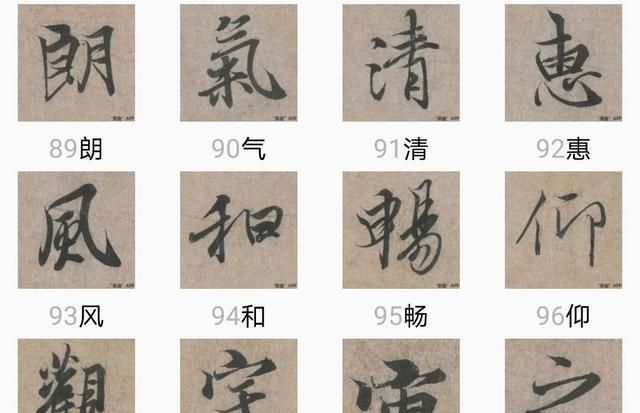 朗 氣 清 惠
89朗 90气 91清 92惠
風 和 暢 仰
93风 94和 95畅 96仰
觀 宇 宙 之